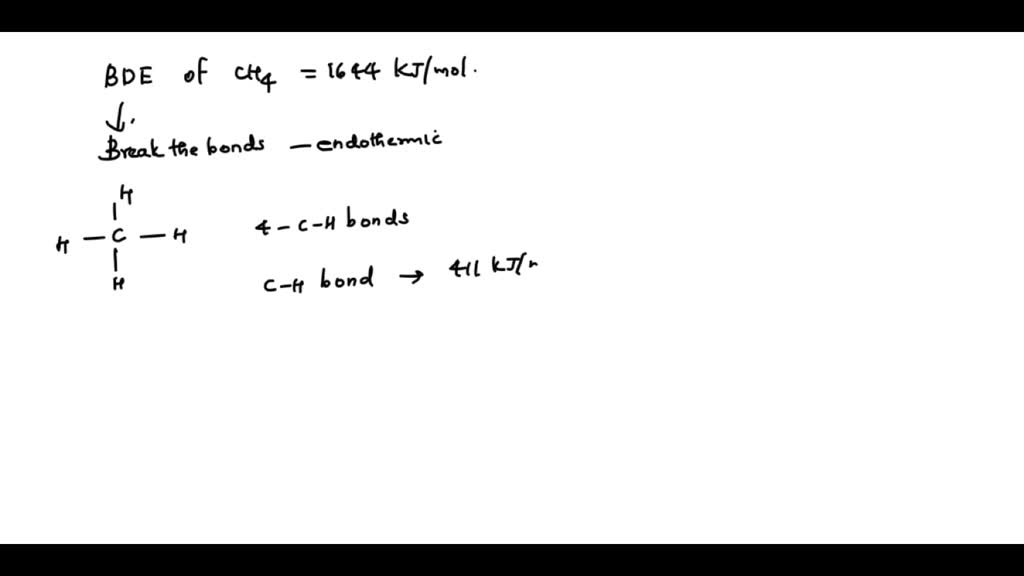 BDE of CH4 = 1644 KJ/mol.
↓.
Break the bonds — endothermic
H
H — C — H
H
4 - C-H bonds
C-H bond → 411 KJ/